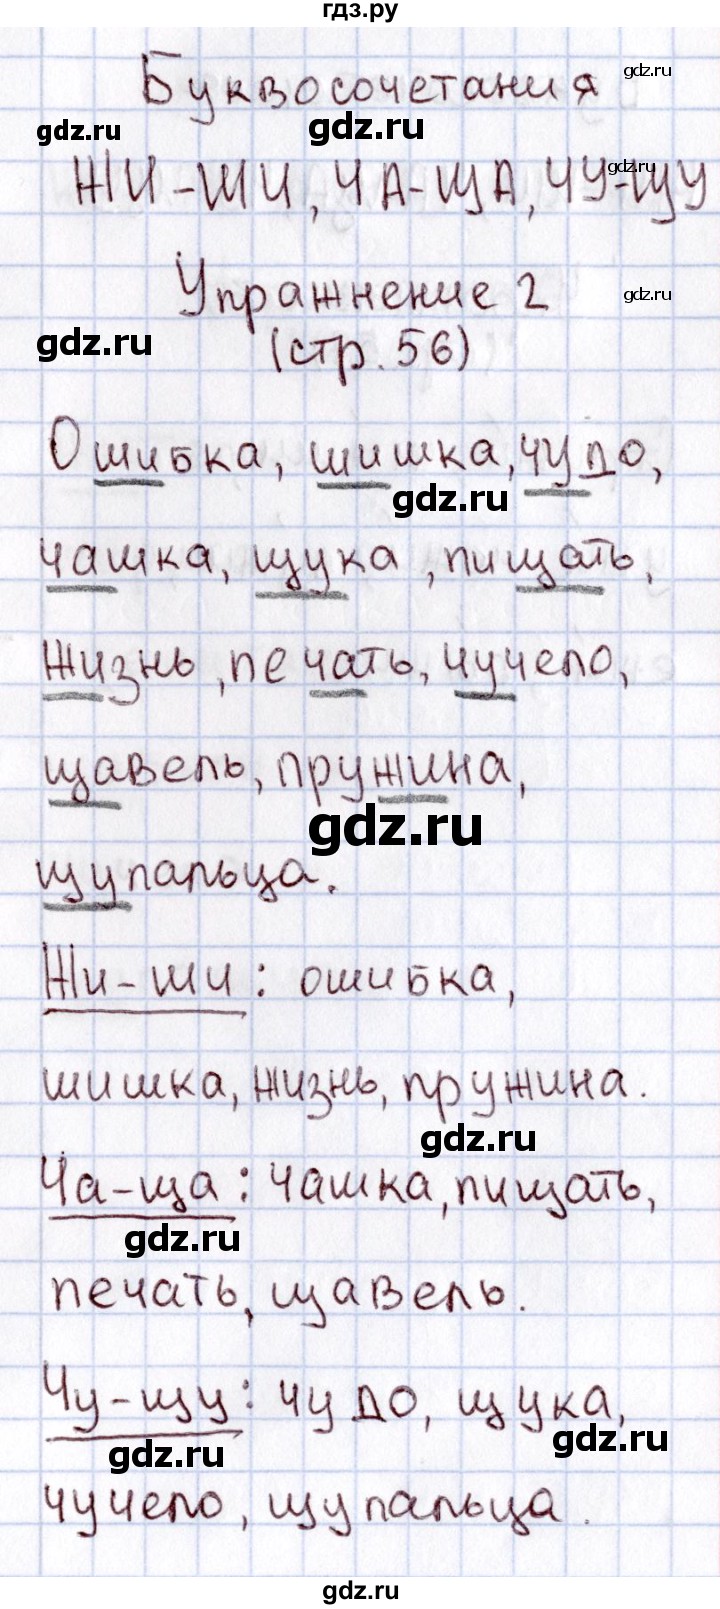 гдз.ру
Буквосочетания
gdz.ru
gdz.ru
gdz.ru
ЖИ-ШИ, ЧА-ЩА, ЧУ-ЩУ
gdz.ru
Упражнение 2
gdz.ru
gdz.ru
(стр. 56)
Ошибка, шишка, чудо,
gdz.ru
чашка, щука, пищать,
жизнь, печать, чучело,
щавель, пружина,
gdz.ru
щупальца.
Жи-ши: ошибка,
шишка, жизнь, пружина.
gdz.ru
Ча-ща: чашка, пищать,
gdz.ru
печать, щавель.
Чу-щу: чудо, щука,
gdz.ru
gdz.ru
чучело, щупальца.
gdz.ru